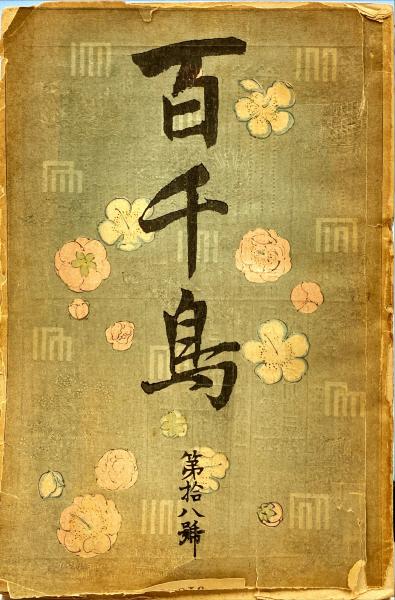 百千鳥
第拾八號